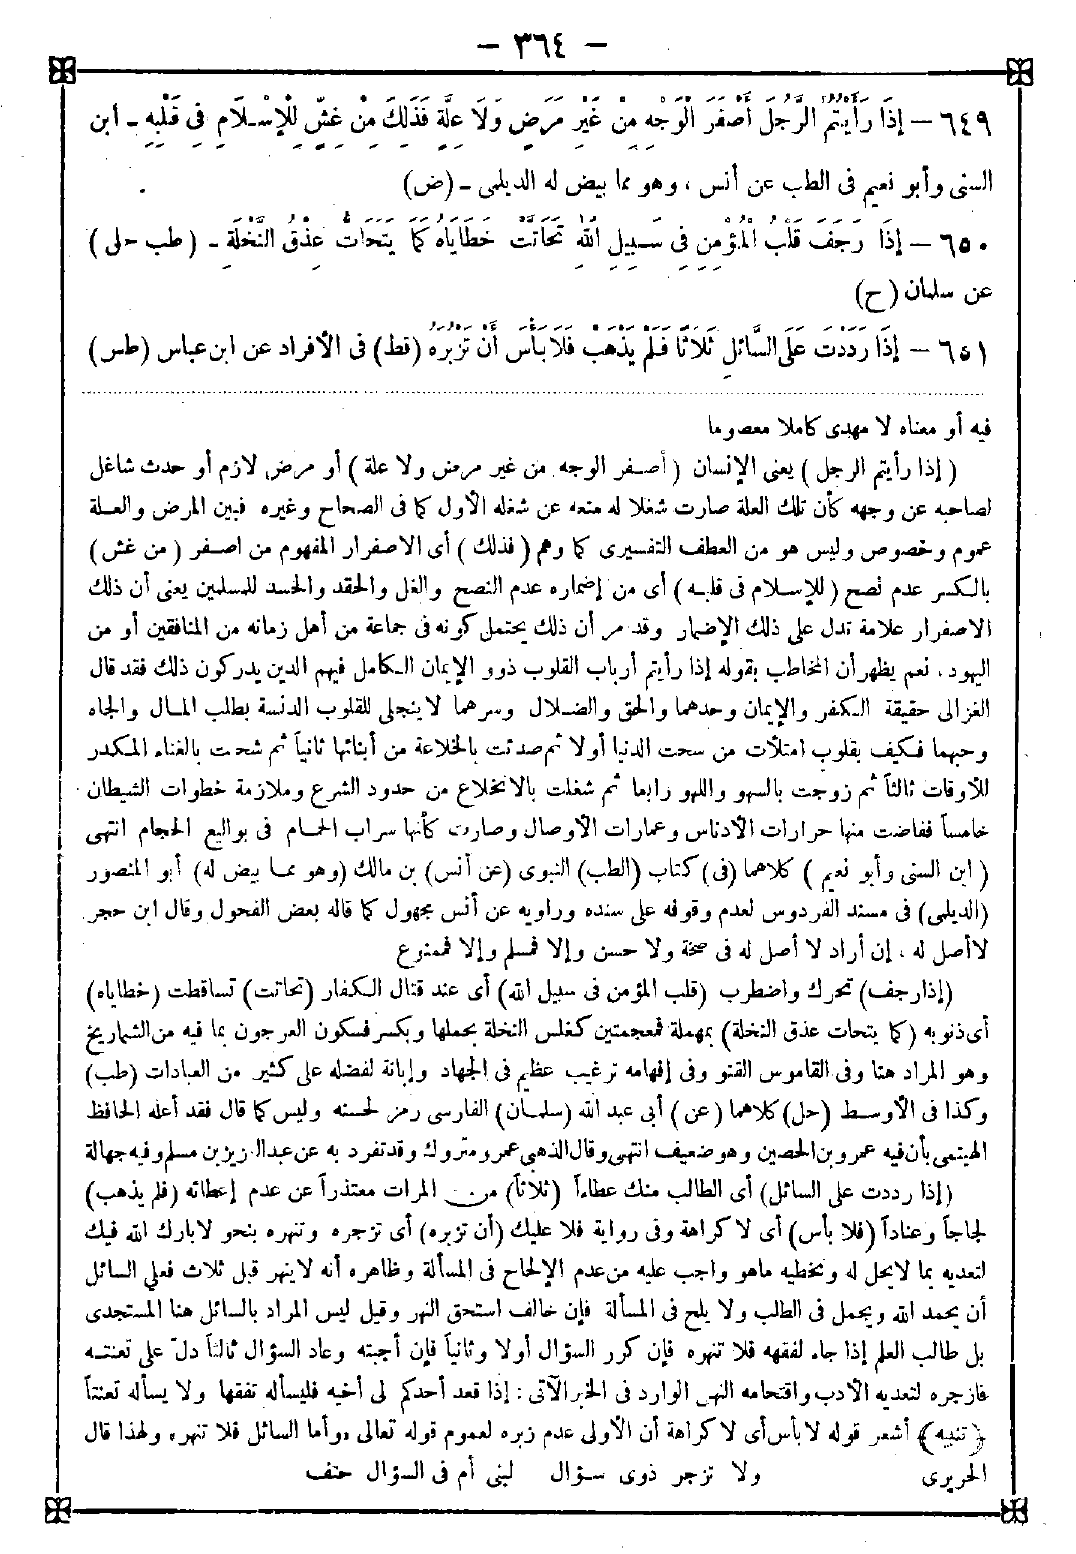 — ٣٦٤ —
٦٤٩ — إِذَا رَأَيْتُمُ الرَّجُلَ أَصْفَرَ الْوَجْهِ مِنْ غَيْرِ مَرَضٍ وَلَا عِلَّةٍ فَذَلِكَ مِنْ غِشٍّ لِلْإِسْلَامِ فِي قَلْبِهِ - ابن
السنى وأبو نعيم فى الطب عن أنس ، وهو مما بيض له الديلمى - (ض)
٦٥٠ — إِذَا رَجَفَ قَلْبُ الْمُؤْمِنِ فِي سَبِيلِ اللهِ تَحَاتَّتْ خَطَايَاهُ كَمَا يَتَحَاتُّ عِذْقُ النَّخْلَةِ - (طب حل)
عن سلمان (ح)
٦٥١ — إِذَا رَدَدْتَ عَلَى السَّائِلِ ثَلَاثًا فَلَمْ يَذْهَبْ فَلَا بَأْسَ أَنْ تَزْبُرَهُ (قط) فى الأفراد عن ابن عباس (طس)
فيه أو معناه لا مهدى كاملا معصوما
(إذا رأيتم الرجل) يعنى الإنسان (أصفر الوجه من غير مرض ولا علة) أو مرض لازم أو حدث شاغل
لصاحبه عن وجهه كأن تلك العلة صارت شغلا له منعه عن شغله الأول كما فى الصحاح وغيره فبين المرض والعلة
عموم وخصوص وليس هو من العطف التفسيرى كما وهم (فذلك) أى الاصفرار المفهوم من اصفر (من غش)
بالكسر عدم نصح (للإسلام فى قلبه) أى من إضماره عدم النصح والغل والحقد والحسد للمسلمين يعنى أن ذلك
الاصفرار علامة تدل على ذلك الإضمار وقد مر أن ذلك يحتمل كونه فى جماعة من أهل زمانه من المنافقين أو من
اليهود ، نعم يظهر أن المخاطب بقوله إذا رأيتم أرباب القلوب ذوو الإيمان الكامل فهم الذين يدركون ذلك فقد قال
الغزالى حقيقة الكفر والإيمان وحدهما والحق والضلال وسرهما لا ينجلى للقلوب الدنسة بطلب المال والجاه
وحبهما فكيف بقلوب امتلأت من سحت الدنيا أولا ثم صدئت بالخلاعة من أبنائها ثانياً ثم شحت بالغناء المكدر
للأوقات ثالثاً ثم زوجت بالسهو واللهو رابعا ثم شغلت بالانخلاع من حدود الشرع وملازمة خطوات الشيطان
خامساً ففاضت منها حرارات الأدناس وعمارات الأوصال وصارت كأنها سراب الحمام فى بواليع الحجام انتهى
(ابن السنى وأبو نعيم) كلاهما (فى) كتاب (الطب) النبوى (عن أنس) بن مالك (وهو مما بيض له) أبو المنصور
(الديلمى) فى مسند الفردوس لعدم وقوفه على سنده وراويه عن أنس مجهول كما قاله بعض الفحول وقال ابن حجر
لا أصل له ، إن أراد لا أصل له فى صحة ولا حسن وإلا فمسلم وإلا فممنوع
(إذا رجف) تحرك واضطرب (قلب المؤمن فى سبيل الله) أى عند قتال الكفار (تحاتت) تساقطت (خطاياه)
أى ذنوبه (كما يتحات عذق النخلة) بمهملة فمعجمتين كفلس النخلة بحملها وبكسر فسكون العرجون بما فيه من الشماريخ
وهو المراد هنا وفى القاموس القنو وفى إفهامه ترغيب عظيم فى الجهاد وإبانة لفضله على كثير من العبادات (طب)
وكذا فى الأوسط (حل) كلاهما (عن) أبى عبد الله (سلمان) الفارسى رمز لحسنه وليس كما قال فقد أعله الحافظ
الهيتمى بأن فيه عمرو بن الحصين وهو ضعيف انتهى وقال الذهبى عمرو متروك وقد تفرد به عن عبد العزيز بن مسلم وفيه جهالة
(إذا رددت على السائل) أى الطالب منك عطاءاً (ثلاثاً) من المرات معتذراً عن عدم إعطائه (فلم يذهب)
لجاجاً وعناداً (فلا بأس) أى لا كراهة وفى رواية فلا عليك (أن تزبره) أى تزجره وتنهره بنحو لا بارك الله فيك
لتعديه بما لا يحل له وتخطيه ما هو واجب عليه من عدم الإلحاح فى المسألة وظاهره أنه لا ينهر قبل ثلاث فعلى السائل
أن يحمد الله ويجمل فى الطلب ولا يلح فى المسألة فإن خالف استحق النهر وقيل ليس المراد بالسائل هنا المستجدى
بل طالب العلم إذا جاء لفقهه فلا تنهره فإن كرر السؤال أولا وثانياً فإن أجبته وعاد السؤال ثالثاً دلّ على تعنته
فازجره لتعديه الأدب واقتحامه النهى الوارد فى الخبر الآتى : إذا قعد أحدكم لى أخيه فليسأله تفقها ولا يسأله تعنتاً
(تنبيه) أشعر قوله لا بأس أى لا كراهة أن الأولى عدم زبره لعموم قوله تعالى «وأما السائل فلا تنهر» ولهذا قال
الحريرى ولا تزجر ذوى سؤال لبنى أم فى السؤال خفف